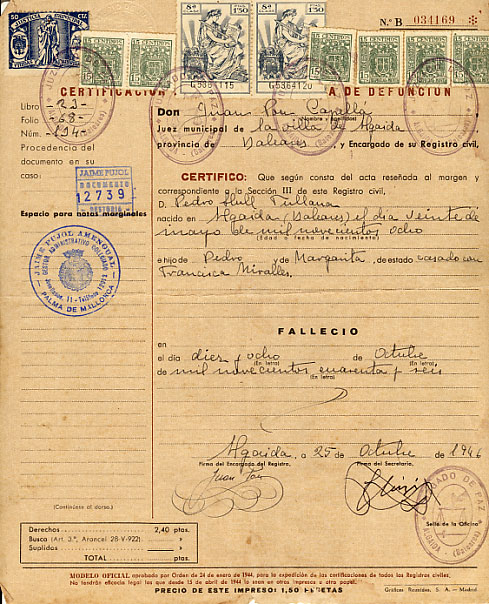 50 CTS
JUSTICIA MUNICIPAL
8ª CLASE 1'50
8ª CLASE 1'50
15 CENTIMOS
15 CENTIMOS
15 CENTIMOS
15 CENTIMOS
15 CENTIMOS
15 CENTIMOS
G.5364115
G.5364120
N.º B 034169
CERTIFICACION A DE DEFUNCION
Libro -23-
Folio -68-
Núm. -194-
Procedencia del
documento en su
caso:
JAIME PUJOL
DOCUMENTO
12739
GESTORIA
Espacio para notas marginales
JAIME PUJOL AMENGUAL
GESTOR ADMINISTRATIVO COLEGIADO
PALMA DE MALLORCA
Don Juan Pou
(Nombre y apellidos)
Juez municipal de la villa de Algaida
provincia de Baleares, y Encargado de su Registro civil,
CERTIFICO: Que según consta del acta reseñada al margen y
correspondiente a la Sección III de este Registro civil,
D. Pedro
nacido en Algaida (Baleares) el día veinte de
mayo de mil novecientos ocho
(Edad o fecha de nacimiento)
e hijo de Pedro y de Margarita, de estado casado con
Francisca Miralles.
FALLECIO
en
el día diez y ocho de Octubre
(En letra)
de mil novecientos cuarenta y seis
(En letra)
Algaida, a 25 de Octubre de 1946
Firma del Encargado del Registro,
Firma del Secretario,
Juan Pou
JUZGADO DE PAZ
ALGAIDA (Baleares)
Sello de la Oficina
(Continúese al dorso.)
Derechos 2,40 ptas.
Busca (Art. 3.º, Arancel 28-V-922) »
Suplidos »
TOTAL ptas.
MODELO OFICIAL aprobado por Orden de 24 de enero de 1944, para la expedición de las certificaciones de todos los Registros civiles.
No tendrán eficacia legal las que desde 15 de abril de 1944 lo sean en otros impresos u otro papel.
PRECIO DE ESTE IMPRESO: 1,50 PESETAS
Gráficas Reunidas, S. A. — Madrid